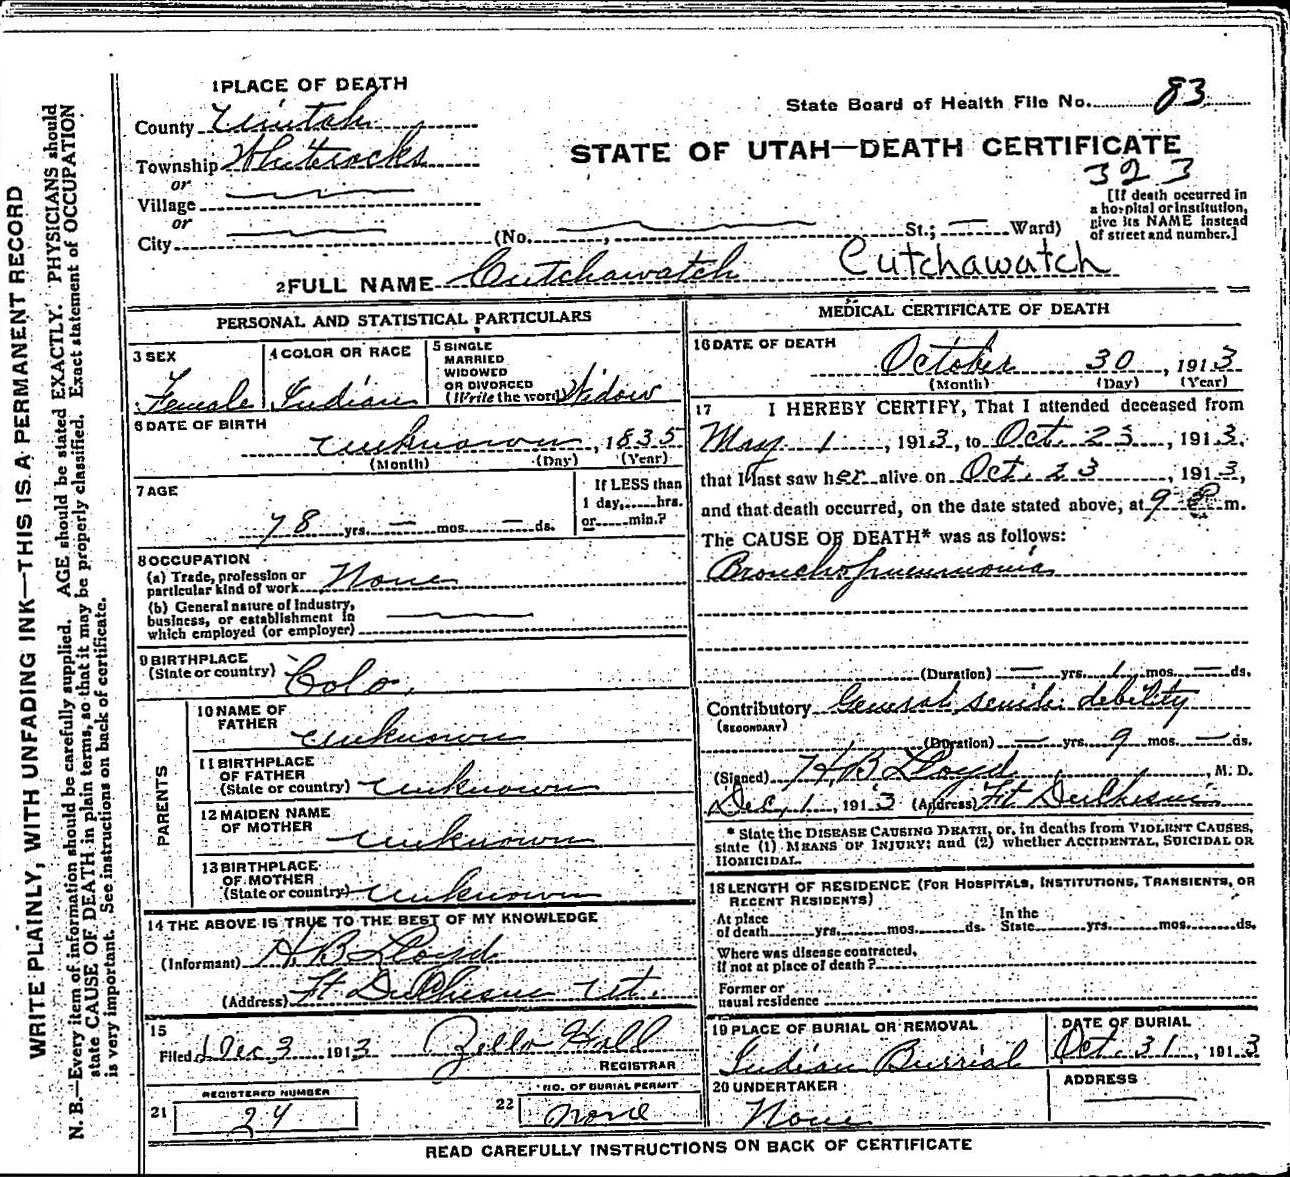 WRITE PLAINLY, WITH UNFADING INK—THIS IS A PERMANENT RECORD
N. B.—Every item of information should be carefully supplied. AGE should be stated EXACTLY. PHYSICIANS should
state CAUSE OF DEATH in plain terms, so that it may be properly classified. Exact statement of OCCUPATION
is very important. See instructions on back of certificate.
1 PLACE OF DEATH
County Uintah
Township Whiterocks
or
Village
or
City
State Board of Health File No. 83
STATE OF UTAH—DEATH CERTIFICATE
323
[If death occurred in
a hospital or institution,
give its NAME instead
of street and number.]
(No. , St.; Ward)
2 FULL NAME Cutchawatch Cutchawatch
PERSONAL AND STATISTICAL PARTICULARS
3 SEX
Female
4 COLOR OR RACE
Indian
5 SINGLE
MARRIED
WIDOWED
OR DIVORCED
(Write the word) Widow
6 DATE OF BIRTH
unknown , 1835
(Month) (Day) (Year)
7 AGE
78 yrs. — mos. — ds.
If LESS than
1 day, hrs.
or min.?
8 OCCUPATION
(a) Trade, profession or
particular kind of work None
(b) General nature of Industry,
business, or establishment in
which employed (or employer)
9 BIRTHPLACE
(State or country) Colo.
PARENTS
10 NAME OF
FATHER unknown
11 BIRTHPLACE
OF FATHER
(State or country) unknown
12 MAIDEN NAME
OF MOTHER unknown
13 BIRTHPLACE
OF MOTHER
(State or country) unknown
14 THE ABOVE IS TRUE TO THE BEST OF MY KNOWLEDGE
(Informant) H B Lloyd
(Address) Ft DuChesne Ut.
15
Filed Dec 3 1913 Zella Hall
REGISTRAR
REGISTERED NUMBER
21 24
NO. OF BURIAL PERMIT
22 none
MEDICAL CERTIFICATE OF DEATH
16 DATE OF DEATH
October 30, 1913
(Month) (Day) (Year)
17 I HEREBY CERTIFY, That I attended deceased from
May 1, 1913, to Oct. 23, 1913,
that I last saw her alive on Oct. 23, 1913,
and that death occurred, on the date stated above, at 9 P m.
The CAUSE OF DEATH* was as follows:
Bronchopneumonia
(Duration) — yrs. 1 mos. — ds.
Contributory General senile debility
(SECONDARY)
(Duration) — yrs. 9 mos. — ds.
(Signed) H B Lloyd, M. D.
Dec, 1, 1913 (Address) Ft DuChesne
* State the DISEASE CAUSING DEATH, or, in deaths from VIOLENT CAUSES,
state (1) MEANS OF INJURY; and (2) whether ACCIDENTAL, SUICIDAL OR
HOMICIDAL.
18 LENGTH OF RESIDENCE (FOR HOSPITALS, INSTITUTIONS, TRANSIENTS, OR
RECENT RESIDENTS)
At place
of death yrs. mos. ds.
In the
State yrs. mos. ds.
Where was disease contracted,
if not at place of death?
Former or
usual residence
19 PLACE OF BURIAL OR REMOVAL
Indian Burrial
DATE OF BURIAL
Oct. 31, 1913
20 UNDERTAKER
None
ADDRESS
READ CAREFULLY INSTRUCTIONS ON BACK OF CERTIFICATE